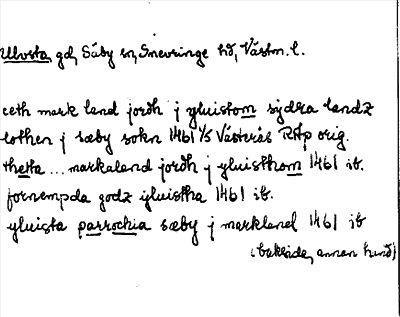 Ulvsta, gd, Säby sn, Snevringe hd, Västm. l.
ceth mark land jordh j yluistom sydra landz
lothen j sæby sokn 1461 1/5 Västerås Rtp orig.
thetta ... markaland jordh j yluisthom 1461 ib.
fornempda godz yluistha 1461 ib.
yluista parrochia sæby j markland 1461 ib
(baksida, annan hand)